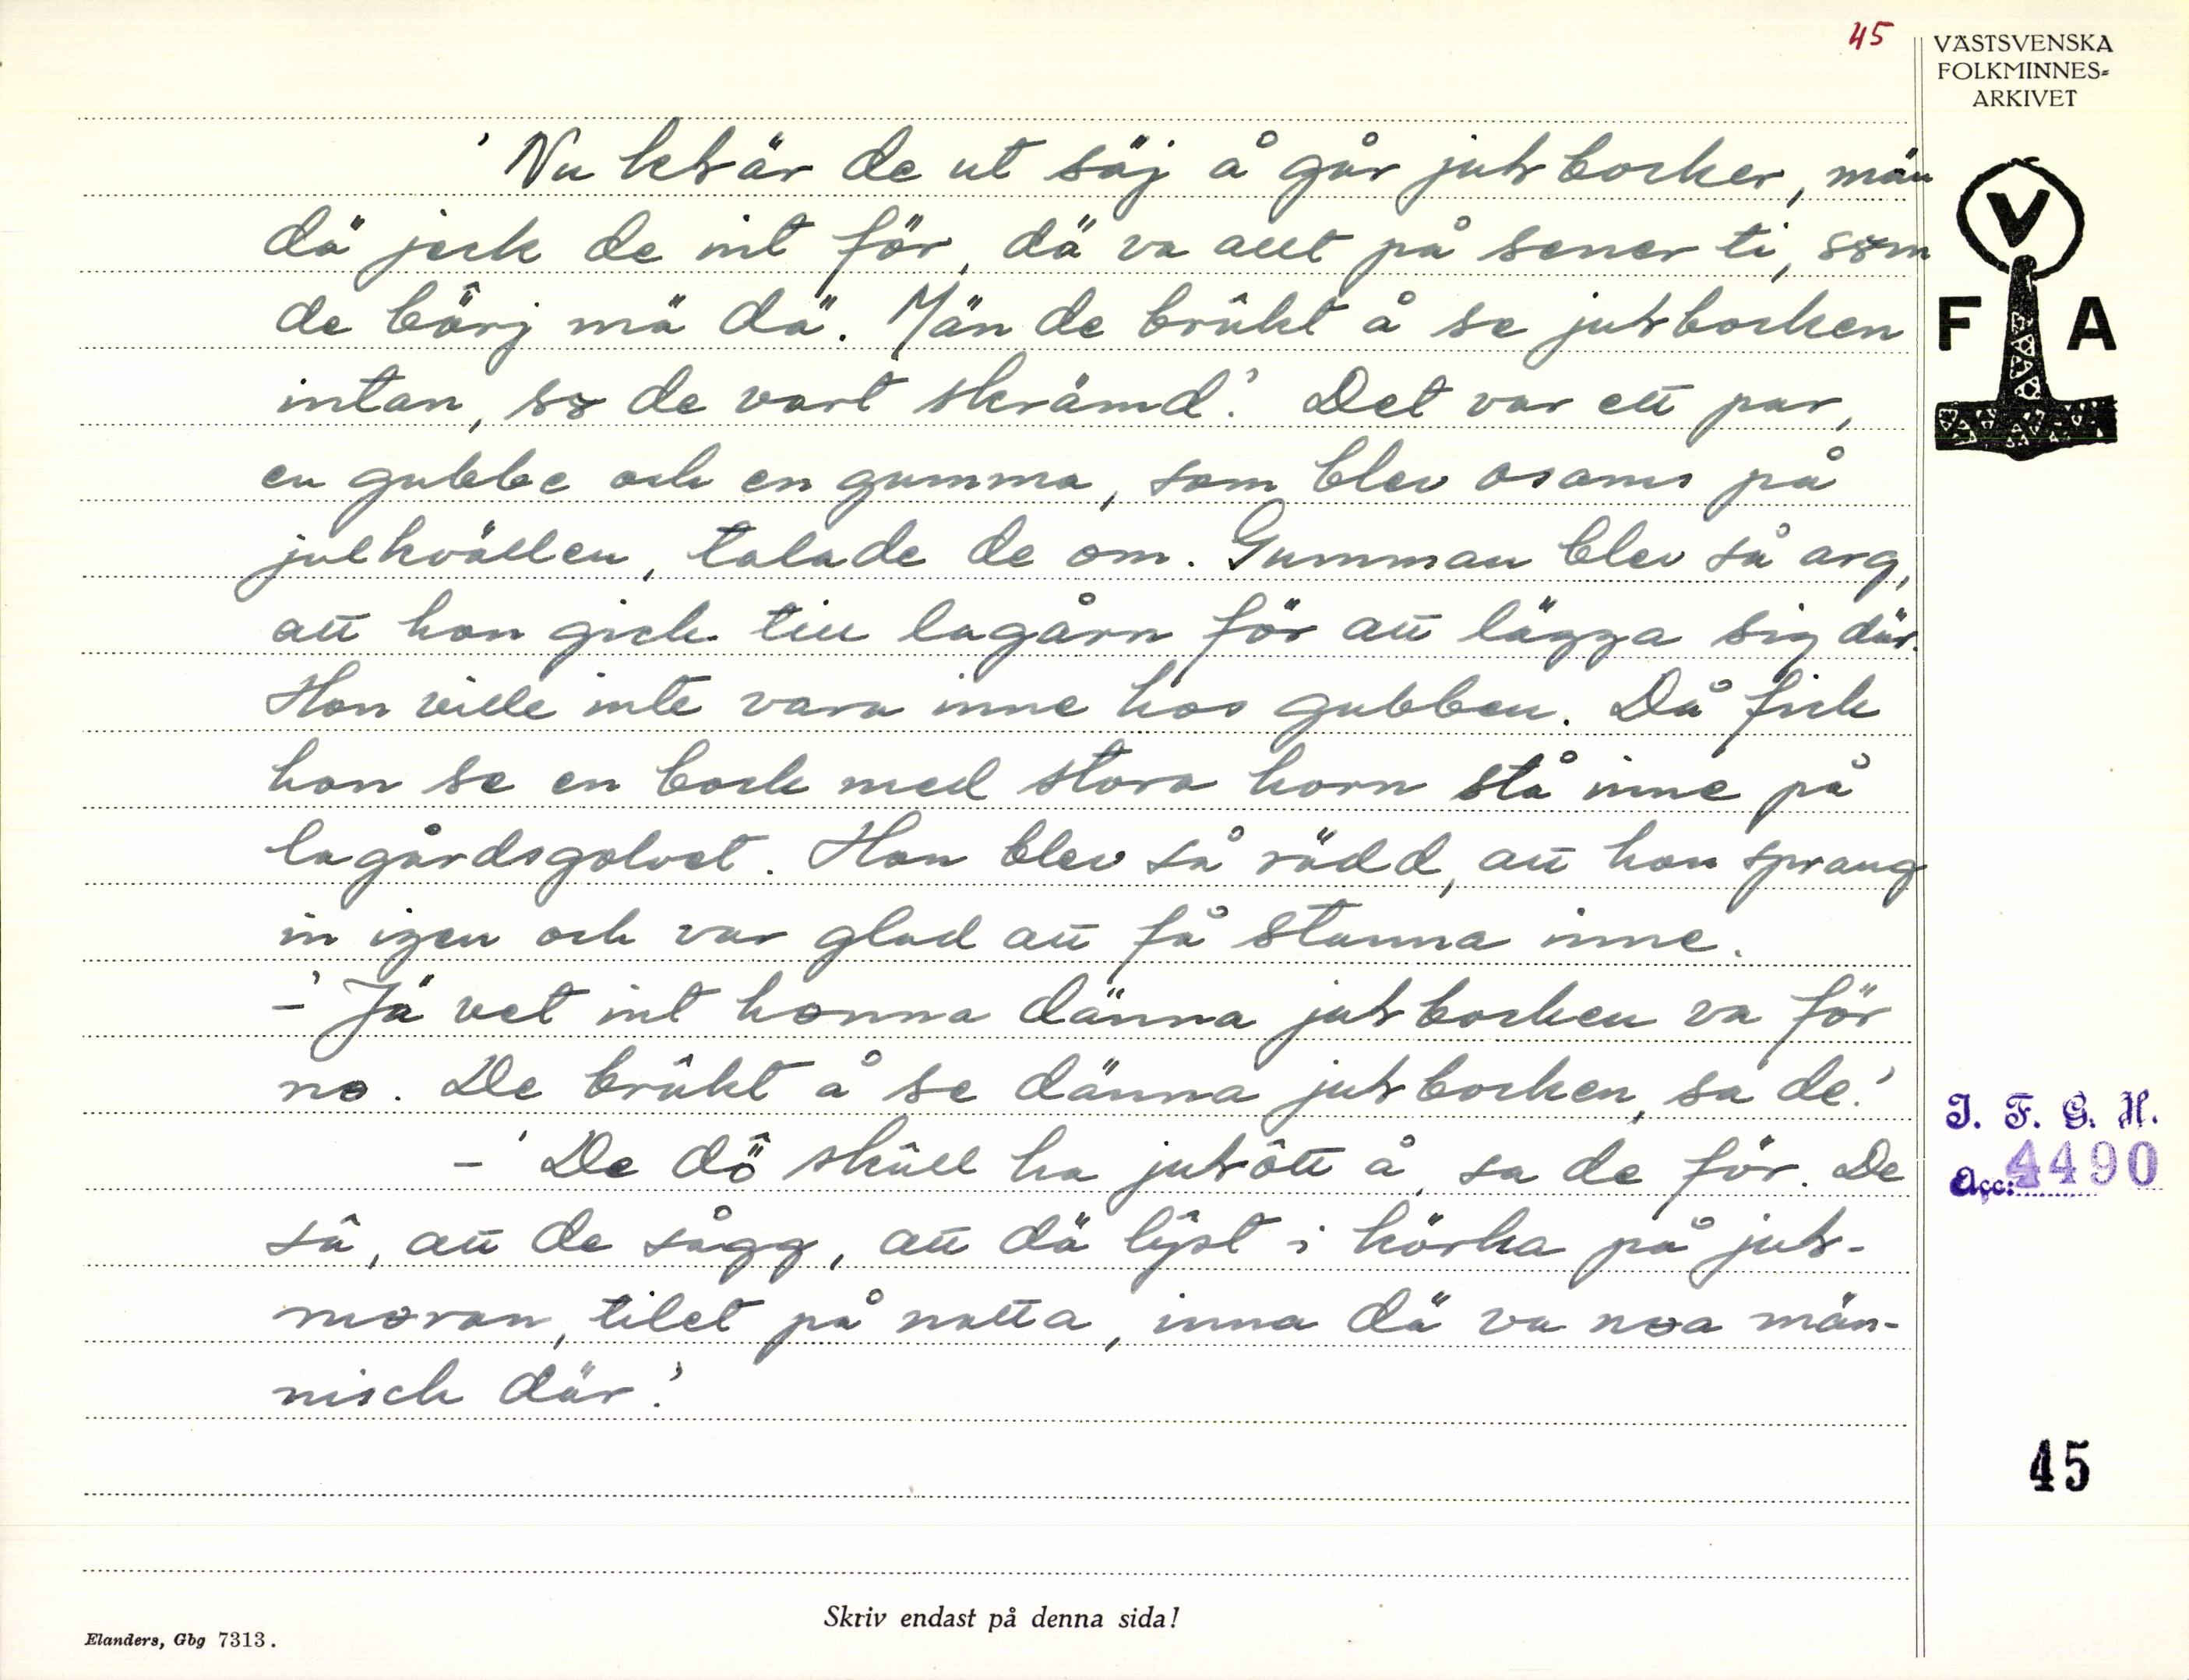 45
VÄSTSVENSKA
FOLKMINNES-
ARKIVET
'Nu kłär de ut säj å går jułbocker, män
dä jeck de int för, dä va allt på sener ti, som
de börj mä dä. Män de brûkt å se jułbocken
intan, so de vart skrämd'. Det var ett par,
en gubbe och en gumma, som blev osams på
julkvällen, talade de om. Gumman blev så arg,
att hon gick till lagårn för att lägga sig där.
Hon ville inte vara inne hos gubben. Då fick
hon se en bock med stora horn stå inne på
lagårdsgolvet. Hon blev så rädd, att hon sprang
in igen och var glad att få stanna inne.
-'Jä vet int honna dänna jułbocken va för
no. De brûkt å se dänna jułbocken, sa de.'
-'De dö skûll ha jułôtt å, sa de för. De
sâ, att de sågg, att dä lŷst i körka på juł-
moran, tilet på natta, inna dä va noa män-
nisch där.'
V
F A
I. F. G. H.
Acc: 4490
45
Skriv endast på denna sida!
Elanders, Gbg 7313.